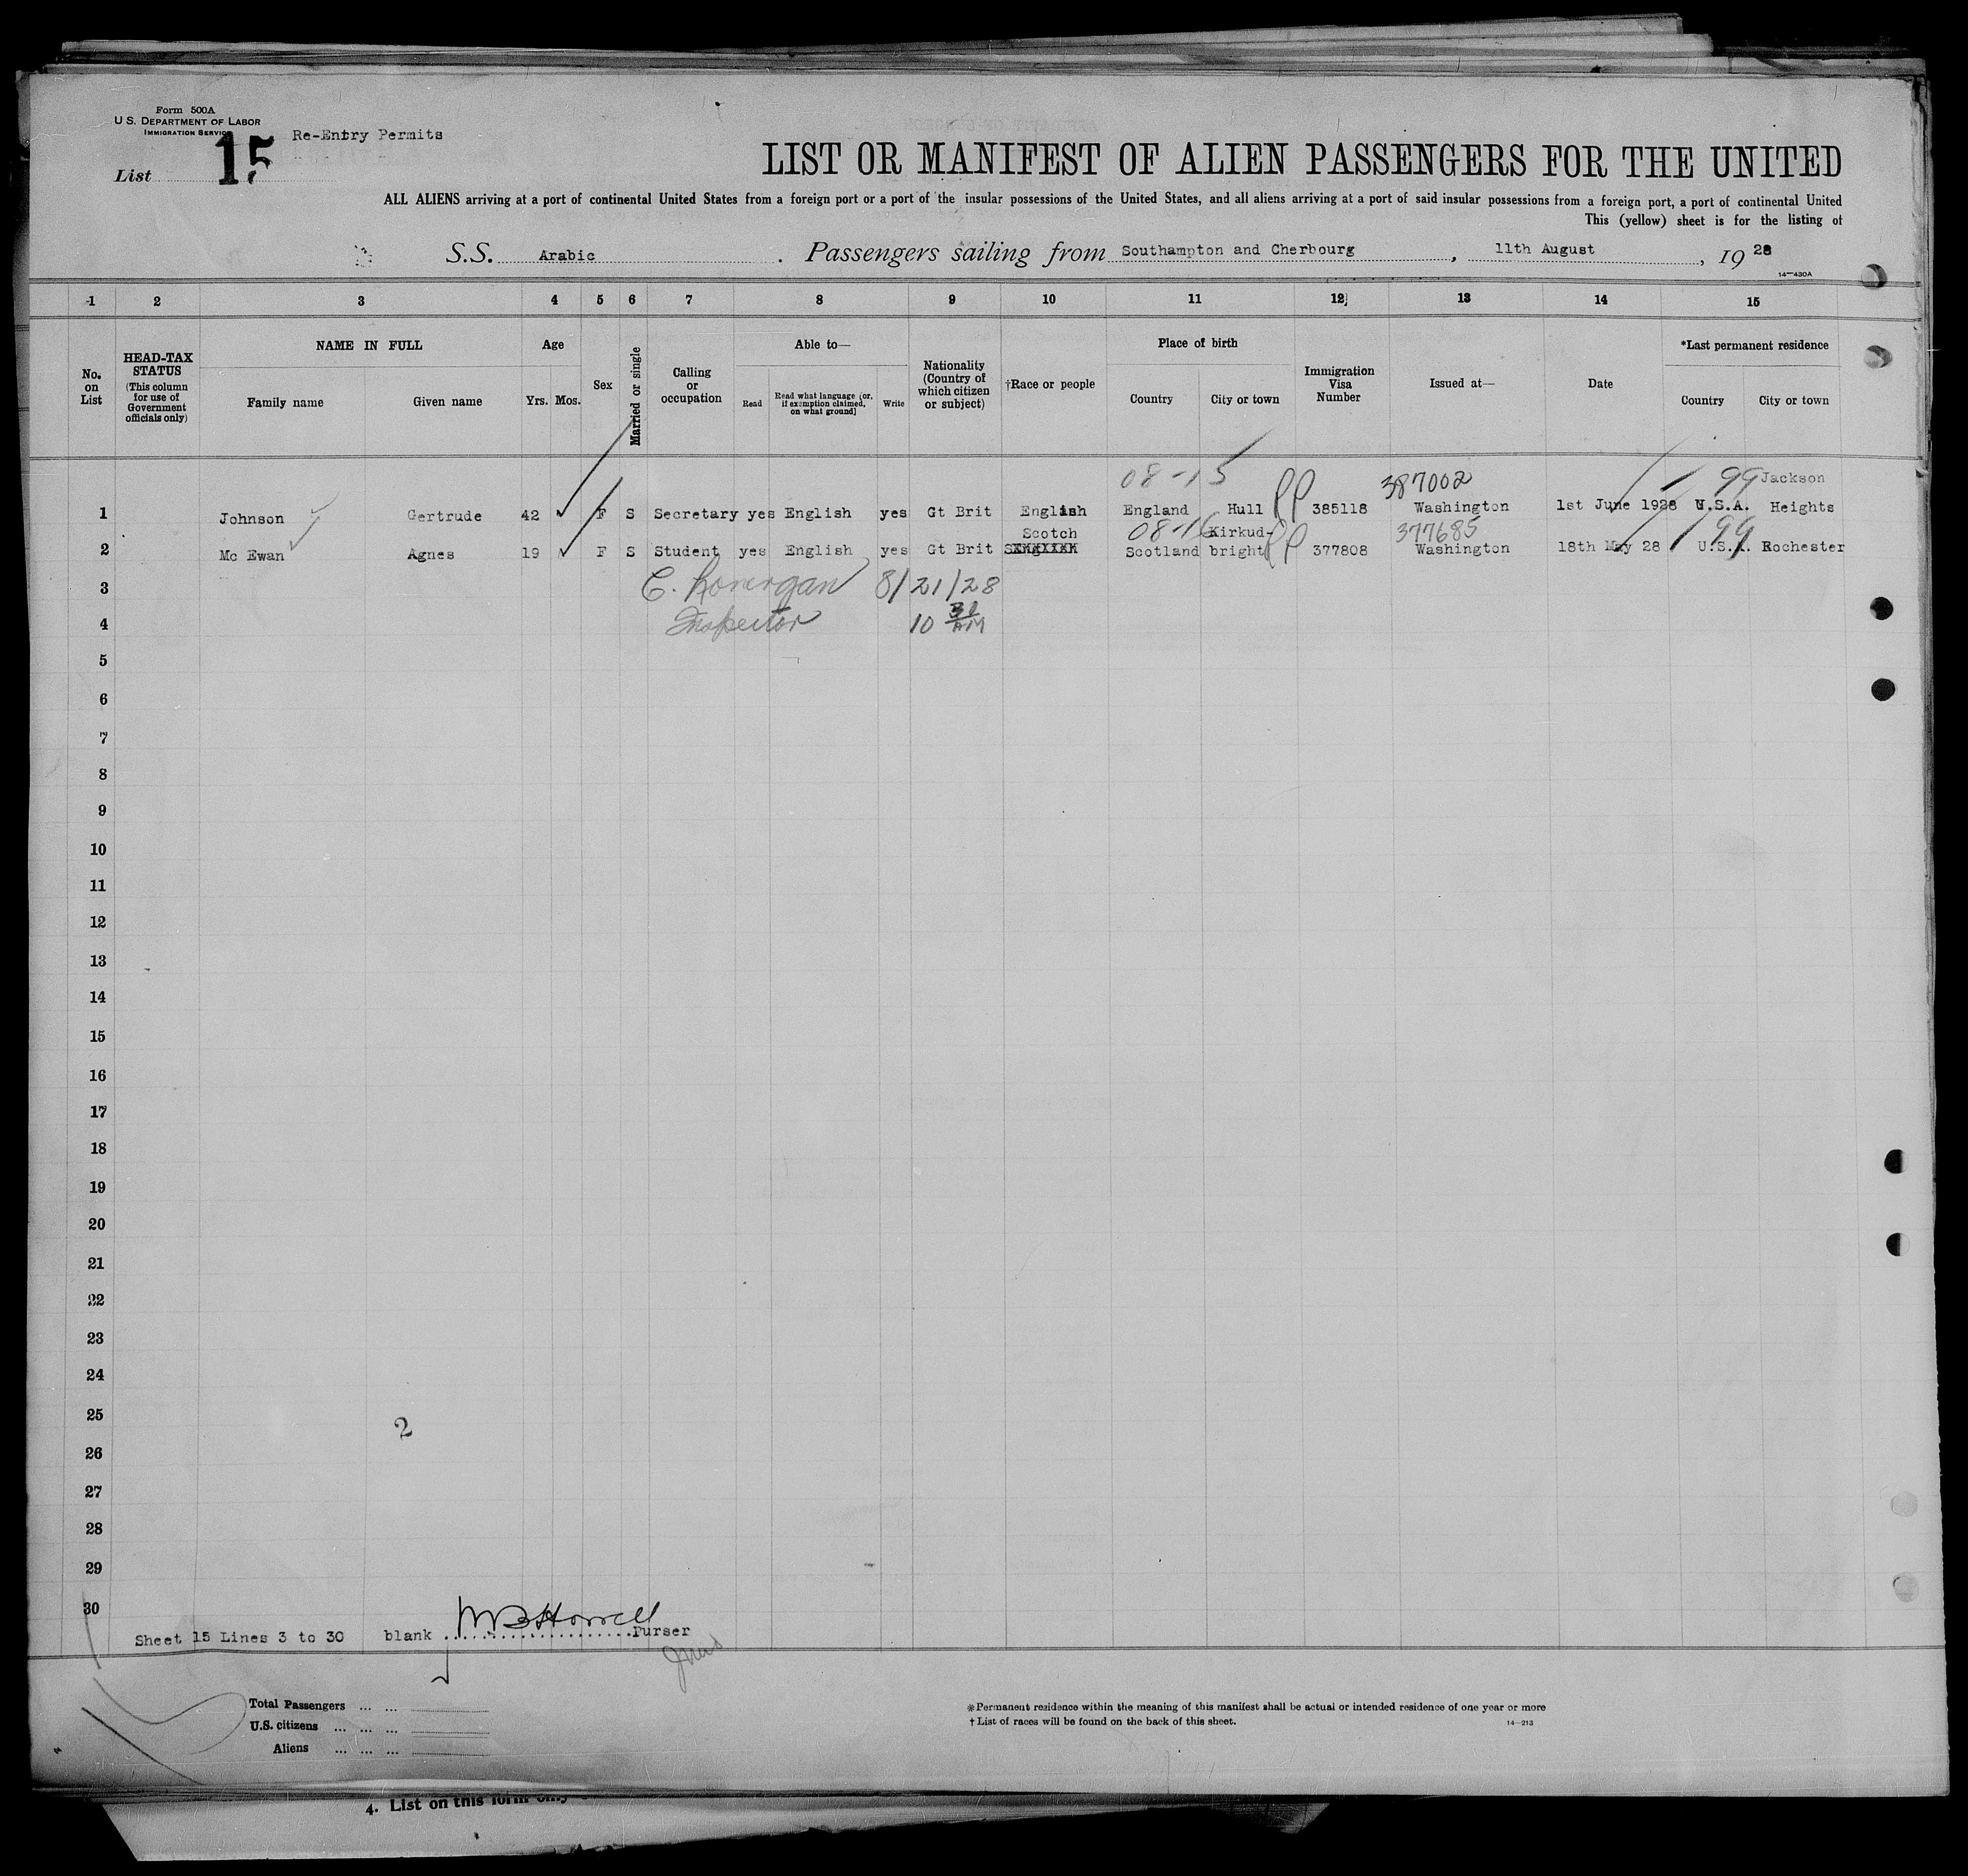 Form 500A
U.S. DEPARTMENT OF LABOR
IMMIGRATION SERVICE
Re-Entry Permits
List 15
LIST OR MANIFEST OF ALIEN PASSENGERS FOR THE UNITED
ALL ALIENS arriving at a port of continental United States from a foreign port or a port of the insular possessions of the United States, and all aliens arriving at a port of said insular possessions from a foreign port, a port of continental United
This (yellow) sheet is for the listing of
S.S. Arabic . Passengers sailing from Southampton and Cherbourg , 11th August , 19 28
14—430A
1 2 3 4 5 6 7 8 9 10 11 12 13 14 15
No. on List
HEAD-TAX STATUS (This column for use of Government officials only)
NAME IN FULL
Family name Given name
Age
Yrs. Mos.
Sex
Married or single
Calling or occupation
Able to—
Read
Read what language [or, if exemption claimed, on what ground]
Write
Nationality (Country of which citizen or subject)
†Race or people
Place of birth
Country City or town
Immigration Visa Number
Issued at—
Date
*Last permanent residence
Country City or town
08-15 387002 99 Jackson
1 Johnson Gertrude 42 F S Secretary yes English yes Gt Brit English England Hull 385118 Washington 1st June 1928 U.S.A. Heights
Scotch 08-16 Kirkud- 377685 99
2 Mc Ewan Agnes 19 F S Student yes English yes Gt Brit Scotland bright 377808 Washington 18th May 28 U.S.A. Rochester
3 C. Lonergan 8/21/28
4 Inspector 10 30 AM
5
6
7
8
9
10
11
12
13
14
15
16
17
18
19
20
21
22
23
24
25
2
26
27
28
29
30
Sheet 15 Lines 3 to 30 blank ....................Purser
Total Passengers ... ...
U.S. citizens ... ... ...
Aliens ... ... ...
*Permanent residence within the meaning of this manifest shall be actual or intended residence of one year or more
† List of races will be found on the back of this sheet.
14—213
4. List on this form only